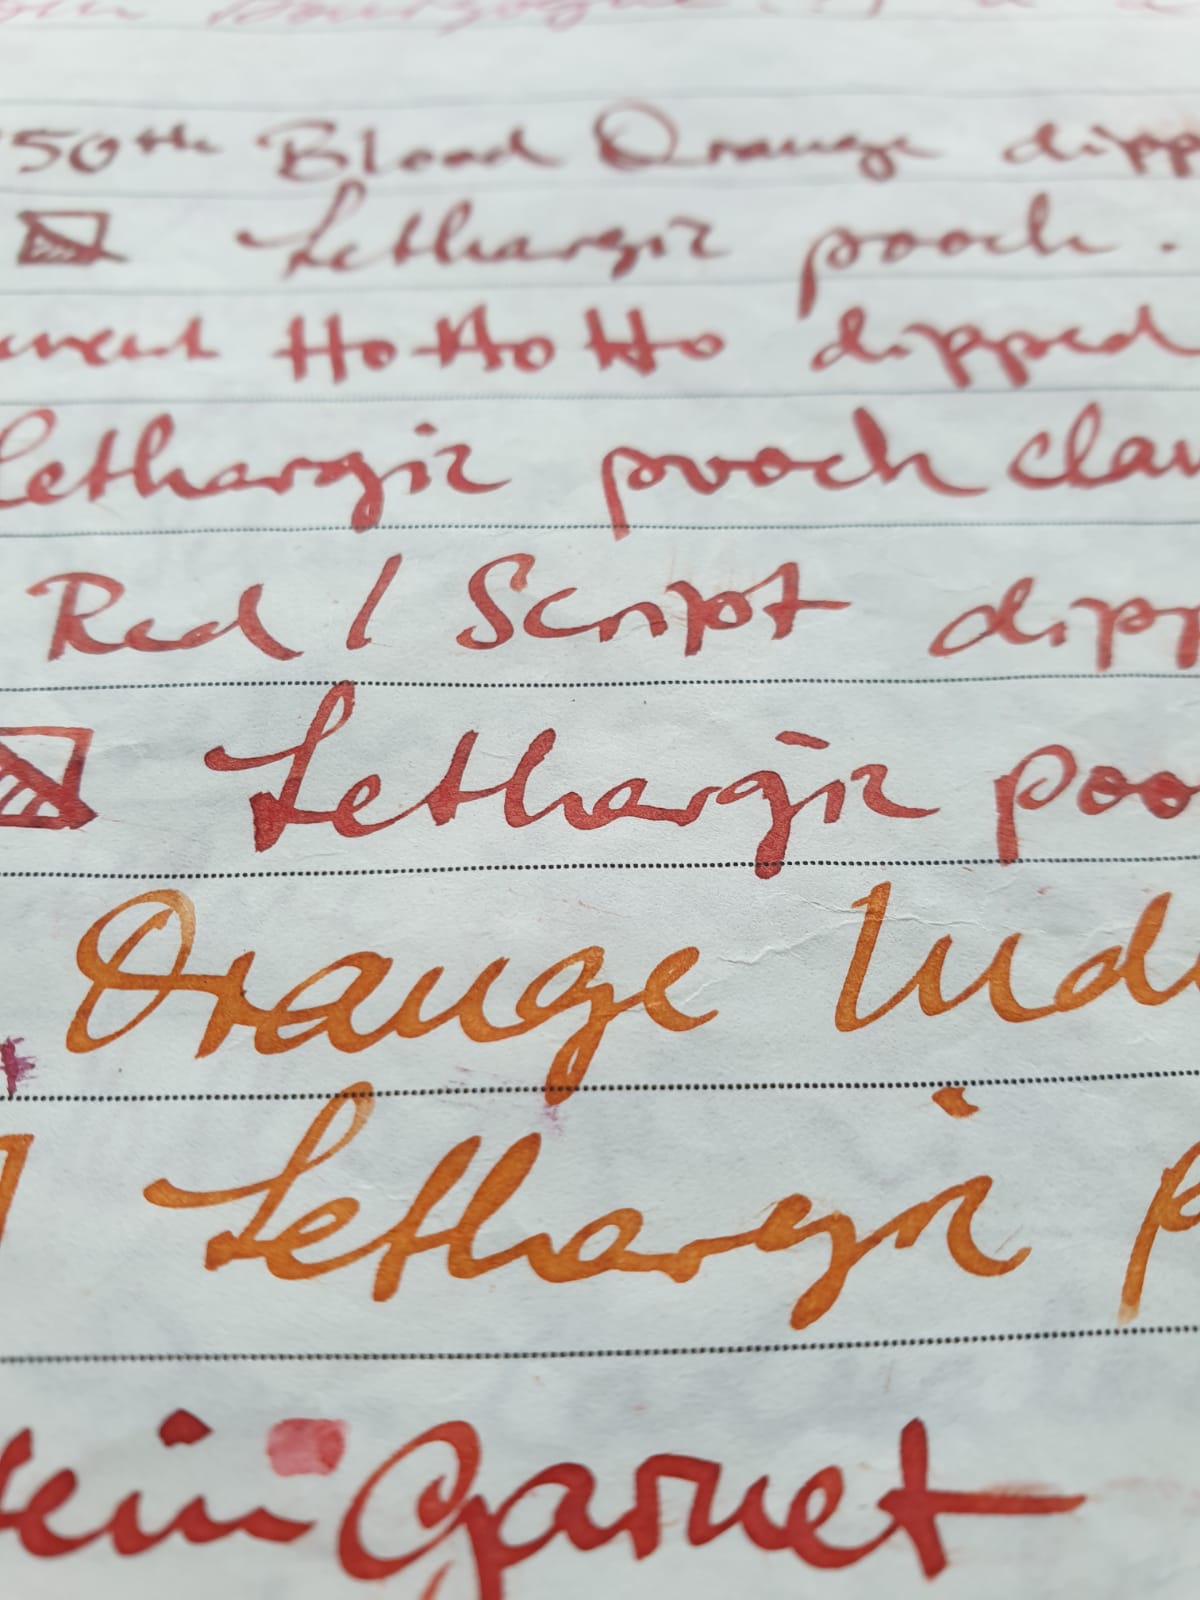 50th Blood Orange dipp
Lethargic pooch.
HoHoHo dipped
Lethargic pooch claw
Red / Script dipp
Lethargic poo
Orange Ind
Lethargic p
Garnet